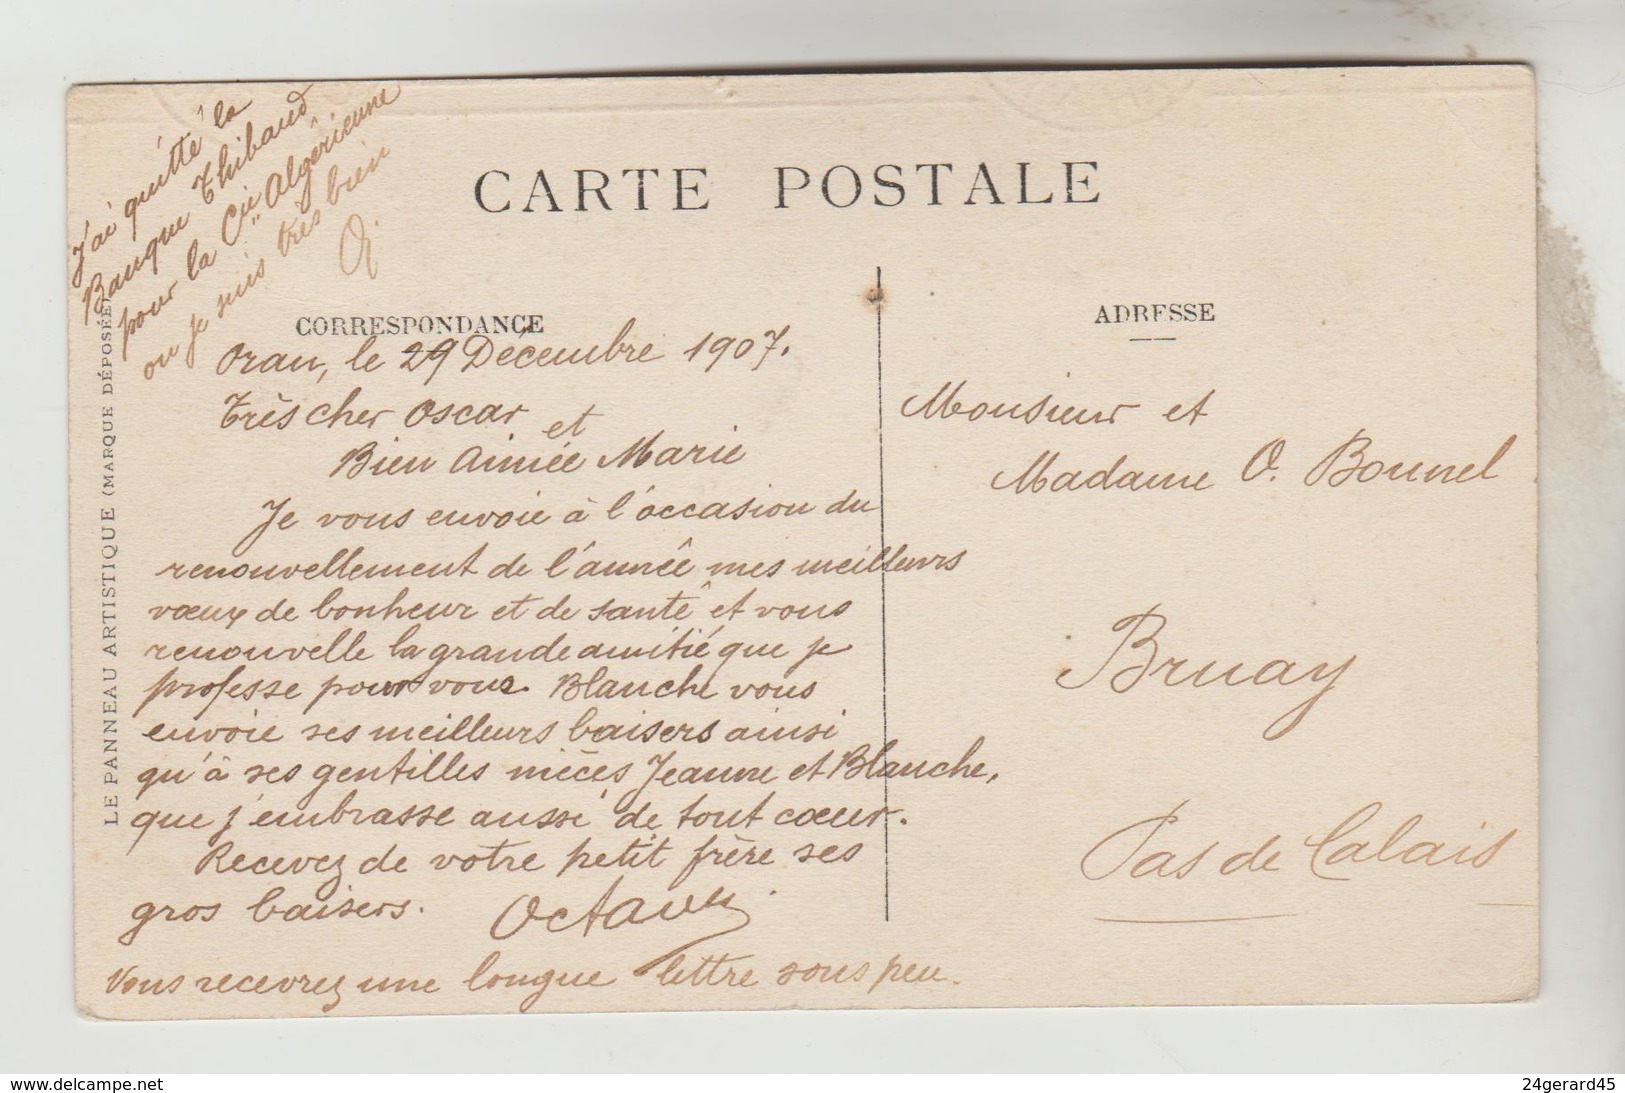 J'ai quitté la
Banque Thibaud
pour la Cie Algérienne
ou je suis très bien
O.
CARTE POSTALE
CORRESPONDANCE
ADRESSE
LE PANNEAU ARTISTIQUE (MARQUE DÉPOSÉE)
Oran, le 29 Décembre 1907.
Très cher Oscar
et
Bien Aimée Marie
Je vous envoie à l'occasion du
renouvellement de l'année mes meilleurs
vœux de bonheur et de santé et vous
renouvelle la grande amitié que je
professe pour vous. Blanche vous
envoie ses meilleurs baisers ainsi
qu'à ses gentilles nièces Jeanne et Blanche,
que j'embrasse aussi de tout cœur.
Recevez de votre petit frère ses
gros baisers. Octave
Vous recevrez une longue lettre sous peu.
Monsieur et
Madame O. Bounel
Bruay
Pas de Calais
www.delcampe.net
24gerard45